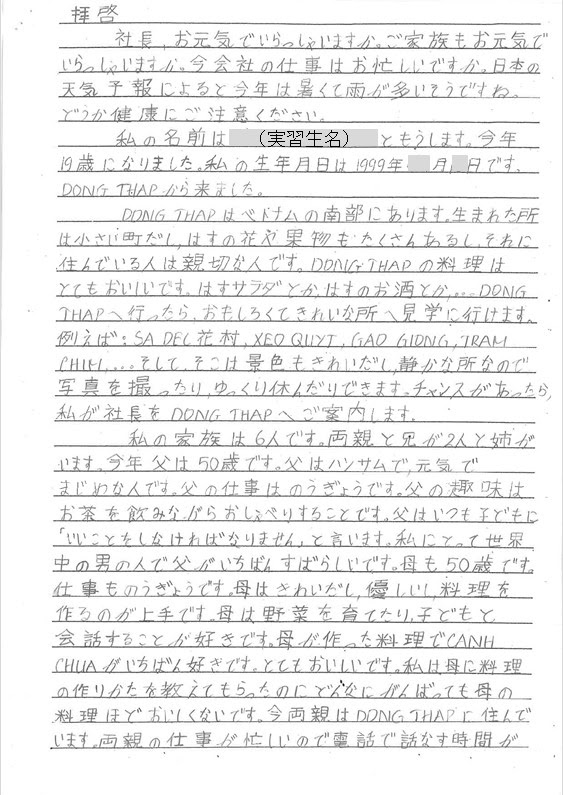 拝啓
社長、お元気でいらっしゃいますか。ご家族もお元気で
いらっしゃいますか。今会社の仕事はお忙しいですか。日本の
天気予報によると今年は暑くて雨が多いそうですね、
どうか健康にご注意ください。
私の名前は（実習生名）ともうします。今年
19歳になりました。私の生年月日は1999年 月 日です。
DONG THAPから来ました。
DONG THAPはベトナムの南部にあります。生まれた所
は小さい町だし、はすの花や果物もたくさんあるし、それに
住んでいる人は親切な人です。DONG THAPの料理は
とてもおいしいです。はすサラダとか、はすのお酒とか,... DONG
THAPへ行ったら、おもしろくてきれいな所へ見学に行けます。
例えば: SA DEC花村, XEO QUYT, GAO GIONG, TRAM
CHIM,... そして、そこは景色もきれいだし、静かな所なので
写真を撮ったり、ゆっくり休んだりできます。チャンスがあったら、
私が社長をDONG THAPへご案内します.
私の家族は6人です。両親と兄が2人と姉が
います。今年父は50歳です。父はハンサムで、元気で
まじめな人です。父の仕事はのうぎょうです。父の趣味は
お茶を飲みながらおしゃべりすることです。父はいつも子どもに
「いいことをしなければなりません」と言います。私にとって世界
中の男の人で父がいちばんすばらしいです。母も50歳です。
仕事ものうぎょうです。母はきれいだし、優しいし、料理を
作るのが上手です。母は野菜を育てたり、子どもと
会話することが好きです。母が作った料理でCANH
CHUAがいちばん好きです。とてもおいしいです。私は母に料理
の作りかたを教えてもらったのにどんなにがんばっても母の
料理ほどおいしくないです。今両親はDONG THAPに住んで
います。両親の仕事が忙しいので電話で話なす時間が